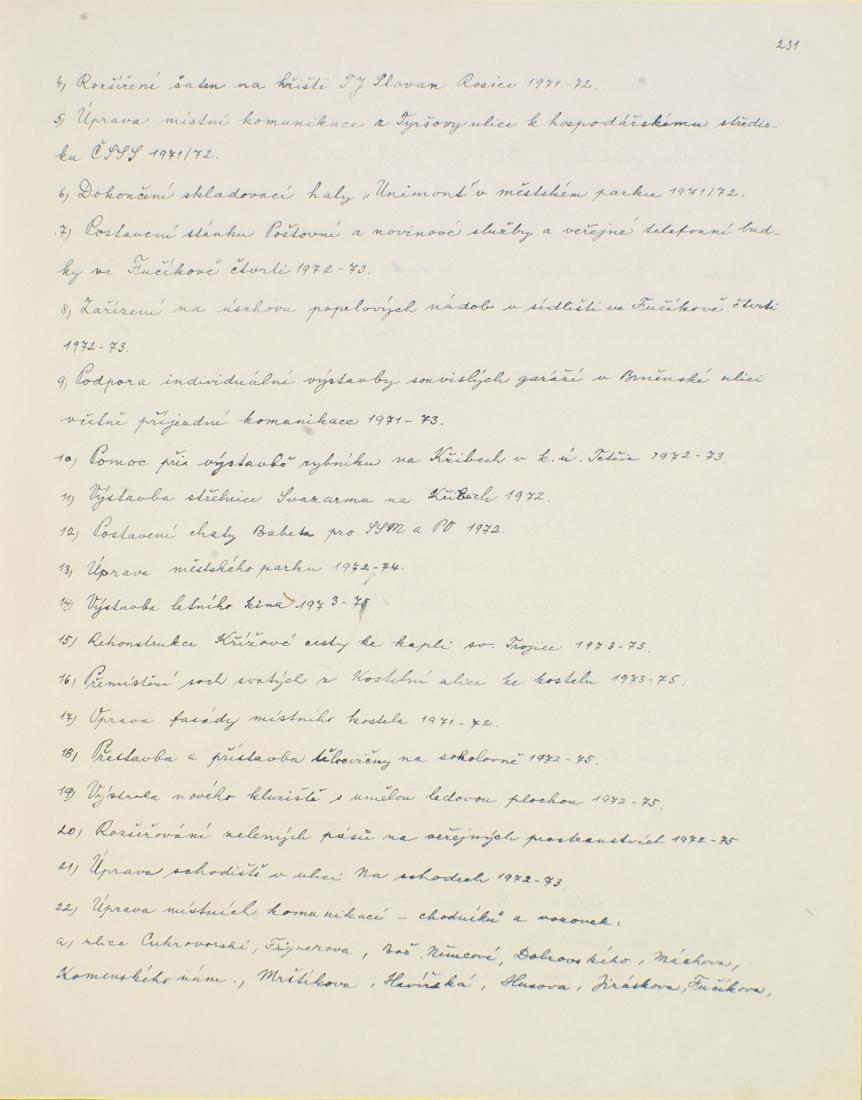 231
4) Rozšíření šaten na hřišti TJ Slovan Rosice 1971-72.
5) Úprava místní komunikace z Tyršovy ulice k hospodářskému středis-
ku ČSSS 1971/72.
6) Dokončení skladovací haly „Unimont" v městském parku 1971/72.
7) Postavení stánku Poštovní a novinové služby a veřejné telefonní bud-
ky ve Fučíkově čtvrti 1972-73.
8) Zařízení na úschovu popelových nádob v sídlišti ve Fučíkově čtvrti
1972-73.
9) Podpora individuální výstavby souvislých garáží v Brněnské ulici
včetně příjezdné komunikace 1971-73.
10) Pomoc při výstavbě rybníku na Křibech v k.ú. Tetčice 1972-73.
11) Výstavba střelnice Svazarmu na Křibech 1972.
12) Postavení chaty Babeta pro SSM a PO 1972.
13) Úprava městského parku 1972-74.
14) Výstavba letního kina 1973-75
15) Rekonstrukce Křížové cesty ke kapli sv. Trojice 1973-75.
16) Přemístění soch svatých z Kostelní ulice ke kostelu 1973-75.
17) Oprava fasády místního kostela 1971-72.
18) Přestavba a přístavba tělocvičny na sokolovně 1972-75.
19) Výstavba nového kluziště s umělou ledovou plochou 1972-75.
20) Rozšiřování zelených pásů na veřejných prostranstvích 1972-75
21) Úprava schodiště v ulici Na schodech 1972-73.
22) Úprava místních komunikací – chodníků a vozovek:
a) ulice Cukrovarská, Fügnerova, Bož. Němcové, Dobrovského, Máchova,
Komenského nám., Mrštíkova, Havířská, Husova, Jiráskova, Fučíkova,